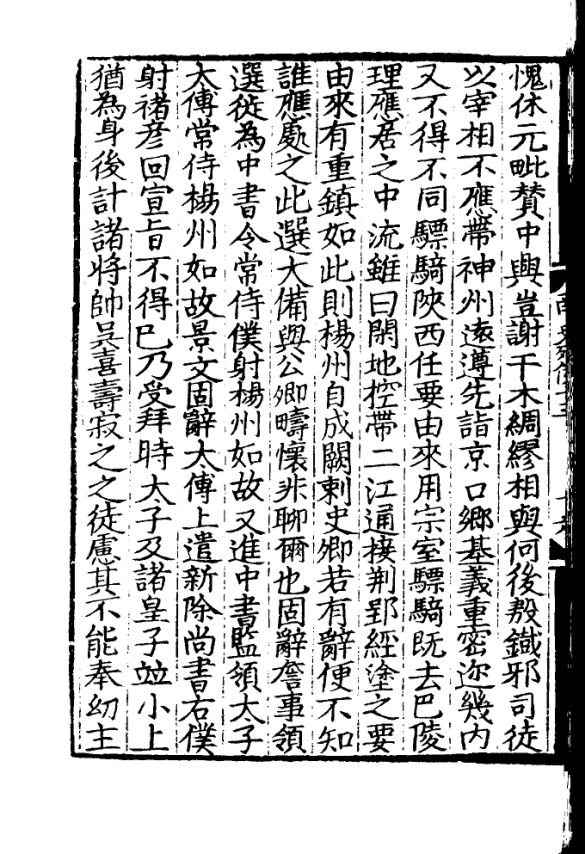 愧休元毗賛中興豈謝干木綢繆相與何後殷鐵邪司徒
以宰相不應帶神州遠遵先詣京口鄉基義重密迩幾内
又不得不同驃騎陝西任要由來用宗室驃騎既去巴陵
理應居之中流雖曰閑地控帶二江通接荆郢經塗之要
由來有重鎮如此則楊州自成闕刺史卿若有辭便不知
誰應處之此選大備與公卿疇懷非聊爾也固辭詹事領
選徙為中書令常侍僕射楊州如故又進中書監領太子
太傅常侍楊州如故景文固辭太傅上遣新除尚書右僕
射褚彦回宣旨不得已乃受拜時太子及諸皇子竝小上
猶為身後計諸將帥吳喜壽寂之之徒慮其不能奉幼主